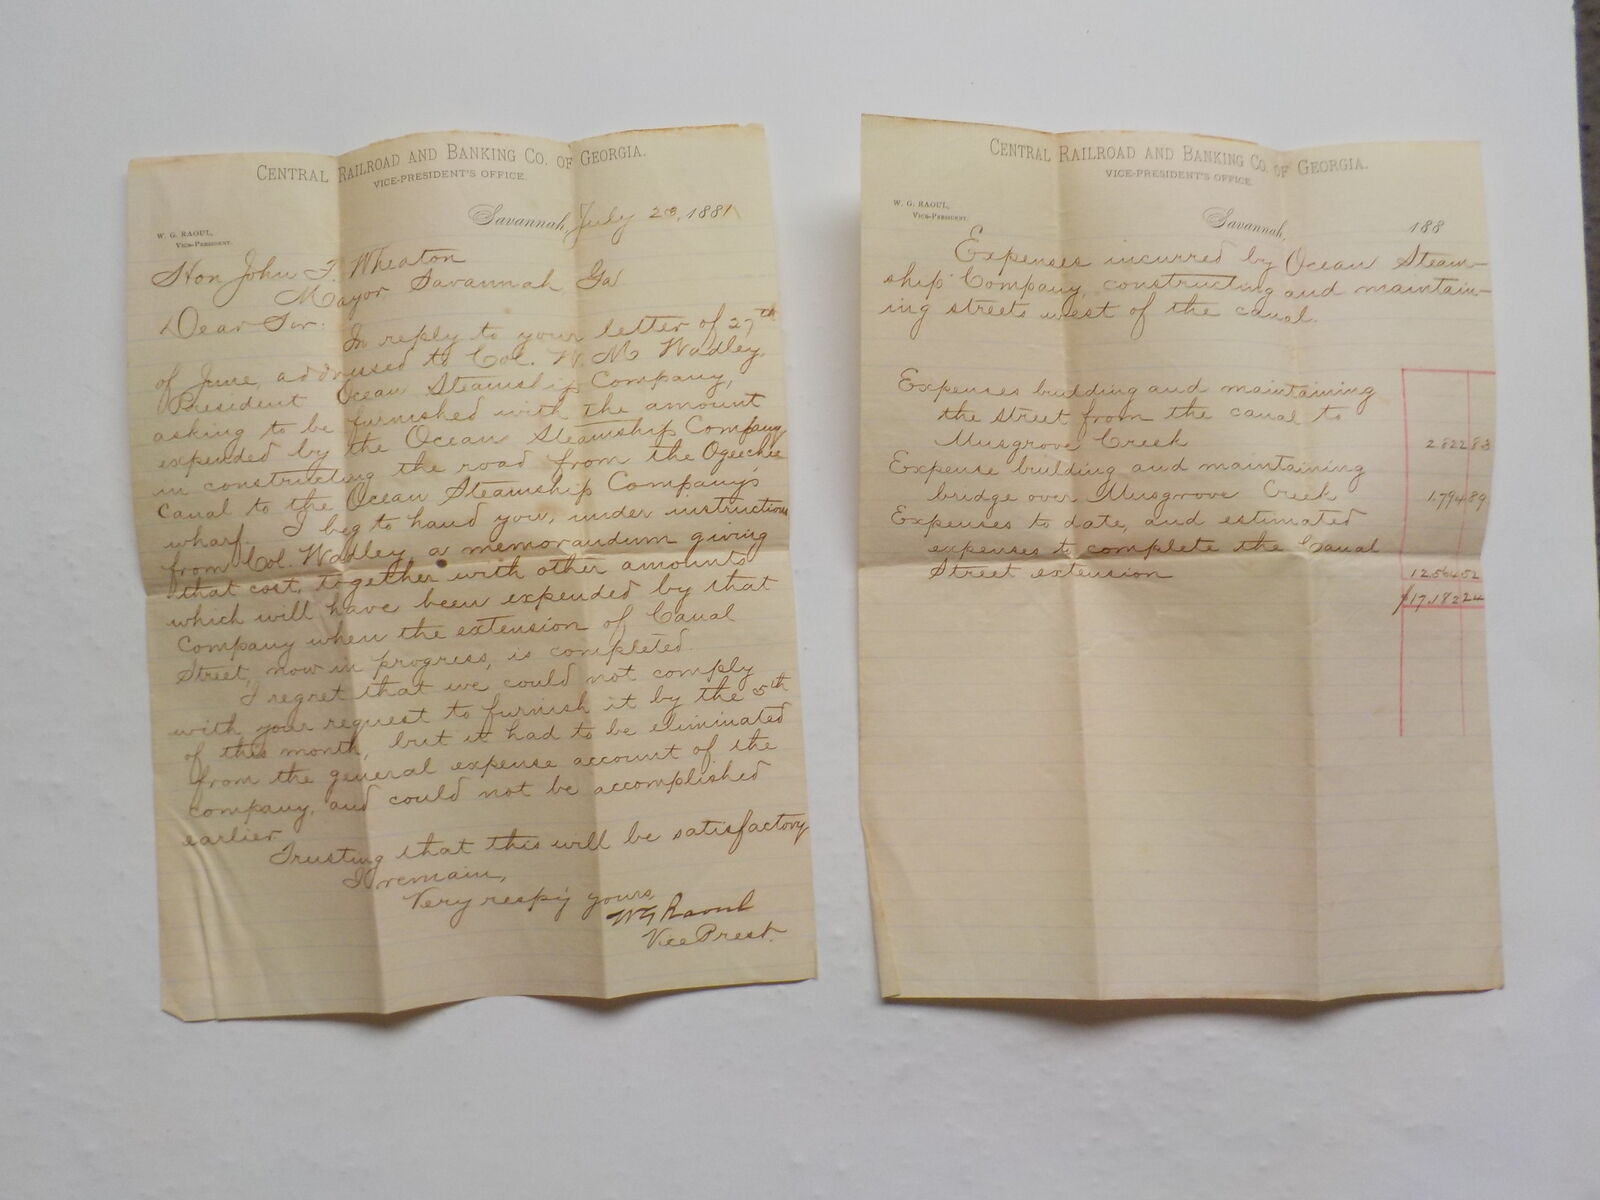 CENTRAL RAILROAD AND BANKING CO. OF GEORGIA.
VICE-PRESIDENT'S OFFICE.
W. G. RAOUL,
VICE-PRESIDENT.
Savannah, July 1881
Hon John F. Wheaton
Mayor Savannah Ga
Dear Sir:
In reply to your letter of 27th
of June, addressed to Col. W. M. Wadley,
President Ocean Steamship Company,
asking to be furnished with the amount
expended by the Ocean Steamship Company
in constructing the road from the Ogeechee
Canal to the Ocean Steamship Company's
wharf. I beg to hand you, under instructions
from Col. Wadley, a memorandum giving
that cost, together with other amounts
which will have been expended by that
Company when the extension of Canal
Street, now in progress, is completed.
I regret that we could not comply
with your request to furnish it by the 5th
of this month, but it had to be eliminated
from the general expense account of the
company, and could not be accomplished
earlier.
Trusting that this will be satisfactory
I remain,
Very resp'y yours
W G Raoul
Vice Prest.
CENTRAL RAILROAD AND BANKING CO. OF GEORGIA.
VICE-PRESIDENT'S OFFICE.
W. G. RAOUL,
VICE-PRESIDENT.
Savannah, 188
Expenses incurred by Ocean Steam-
ship Company, constructing and maintain-
ing streets west of the canal.
Expenses building and maintaining
the street from the canal to
Musgrove Creek 2822 83
Expense building and maintaining
bridge over Musgrove Creek 1.794 89
Expenses to date, and estimated
expenses to complete the Canal
Street extension 12.564 52
$17.182 24